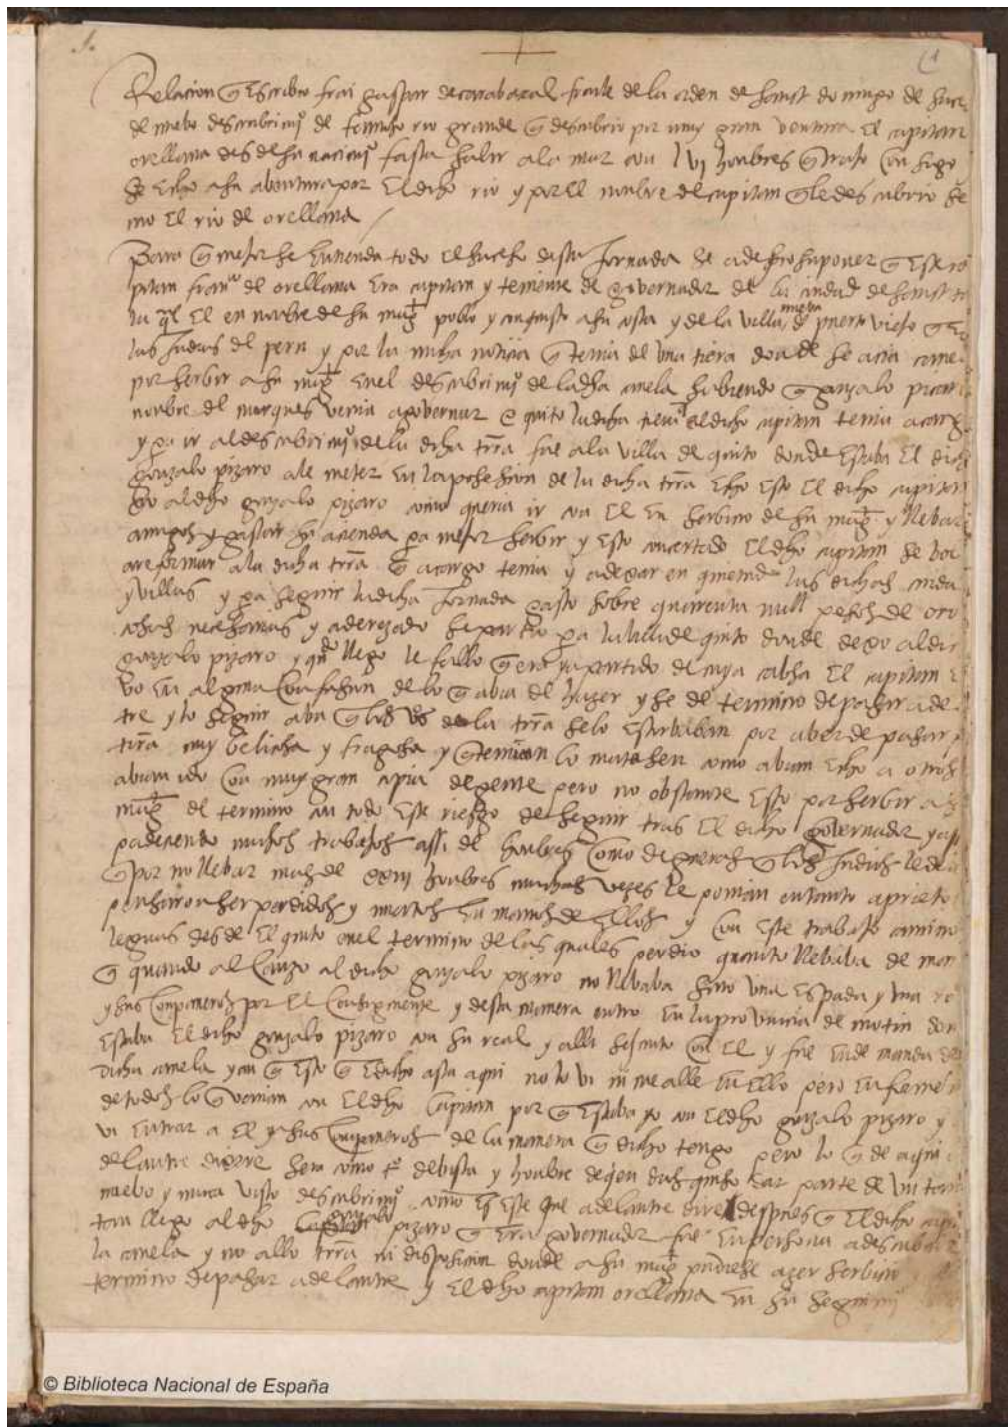 1.
Relacion q escribio frai gaspar de carabaxal fraile de la orden de santo domingo de
de nuebo descubrimiº de famoso rio grande q descubrio por muy gran ventura el capitan
orellana desde su nacimiº fasta salir a la mar con lvii honbres q trujo consigo
se echo a su abentura por el dicho rio y por el nonbre de capitan q le descubrio se
mo el rio de orellana
Para q mejor se entienda todo el suceso desta jornada se a de prosuponer q este ca
pitan franco de orellana era capitan y teniente de governador de la ciudad de santi
la ql el en nonbre de su magt poblo y conquisto a su costa y de la villa nueva de puerto viejo q es
las indias del peru y por la mucha noticia q tenia de una tiera donde se acia cane
por serbir a su magt en el descubrimiº de la dha canela sabiendo q gonzalo pizar
nonbre del marques venia a governar a quito la dicha tiera q el dicho capitan tenia a carg
y pa ir al descubrimiº de la dicha trra fue a la villa de quito donde estaba el dich
gonzalo pizaro a le meter en la posesion de la dicha trra echo esto el dicho capitan
xo al dho gonzalo pizaro como queria ir con el en serbicio de su magt y llebar
amigos y gastar su acienda pa mejor serbir y esto concertado el dho capitan se bol
a reformar a la dicha trra q a cargo tenia y a dexar en quietud las dichas ciuda
y villas y pa seguir la dicha jornada gasto sobre quarenta mill pesos de oro
cosas necesarias y aderezado se partio pa la villa de quito donde dexo al di
gonzalo pizaro y qndo llego le fallo q era ya partido de cuya cabsa el capitan e
bo en alguna confusion de lo q abia de hazer y se determino de pasar ade
te y lo seguir abn q los vºs de la trra se lo estorbaban por aber de pasar p
tirra muy belicosa y fragosa y q temian lo matasen como abian echo a otros
abian ido con muy gran copia de gente pero no obstante esto por serbir a s
magt determino con todo este riesgo de seguir tras el dicho governador y asi
padeciendo muchos trabajos assi de honbres como de gueras q los indios le da
q por no llebar mas de xxiii honbres muchas vezes le ponian en tanto aprieto
pensaron ser perdidos y muertos en manos de ellos y con este trabajo camino
leguas desde el quito en el termino de las quales perdio quanto llebaba de man
q quando alcanzo al dicho gonzalo pizaro no llebaba sino una espada y una ro
y sus conpaneros por el consiguiente y desta manera entro en la provincia de motin don
estaba el dicho gonzalo pizaro con su real y alli se junto con el y fue en demanda de
dicha canela y aun q esto q e dicho asta aqui no lo vi ni me alle en ello pero informe
de todos los q venian con el dho capitan por q estaba yo con el dho gonzalo pizaro y
vi entrar a el y sus conpaneros de la manera q dicho tengo pero lo q de aqui
delante dixere sera como tº de bista y honbre de quien dios quiso dar parte de un tan
nuebo y nunca visto descubrimiº como es este que adelante dire despues q el dicho capi
tan llego al dho gonzalo pizaro q era governador fue en persona a descubrir
la canela y no allo trra ni disposicion donde a su magt pudiese azer serbicio
termino de pasar adelante y el dho capitan orellana en su seguimiº
© Biblioteca Nacional de España